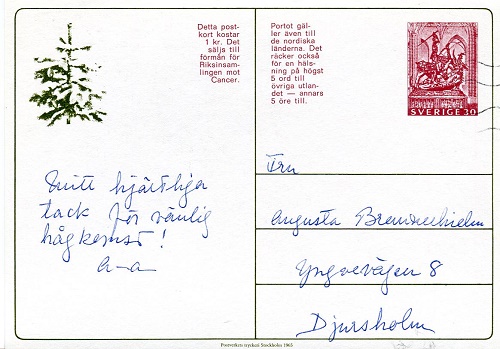 Detta post-
kort kostar
1 kr. Det
säljs till
förmån för
Riksinsam-
lingen mot
Cancer.
Portot gäl-
ler även till
de nordiska
länderna. Det
räcker också
för en häls-
ning på högst
5 ord till
övriga utlan-
det — annars
5 öre till.
SVERIGE 30
Mitt hjärtliga
tack för vänlig
hågkomst!
Fru
Augusta
Yngvevägen 8
Djursholm
Postverkets tryckeri Stockholm 1965